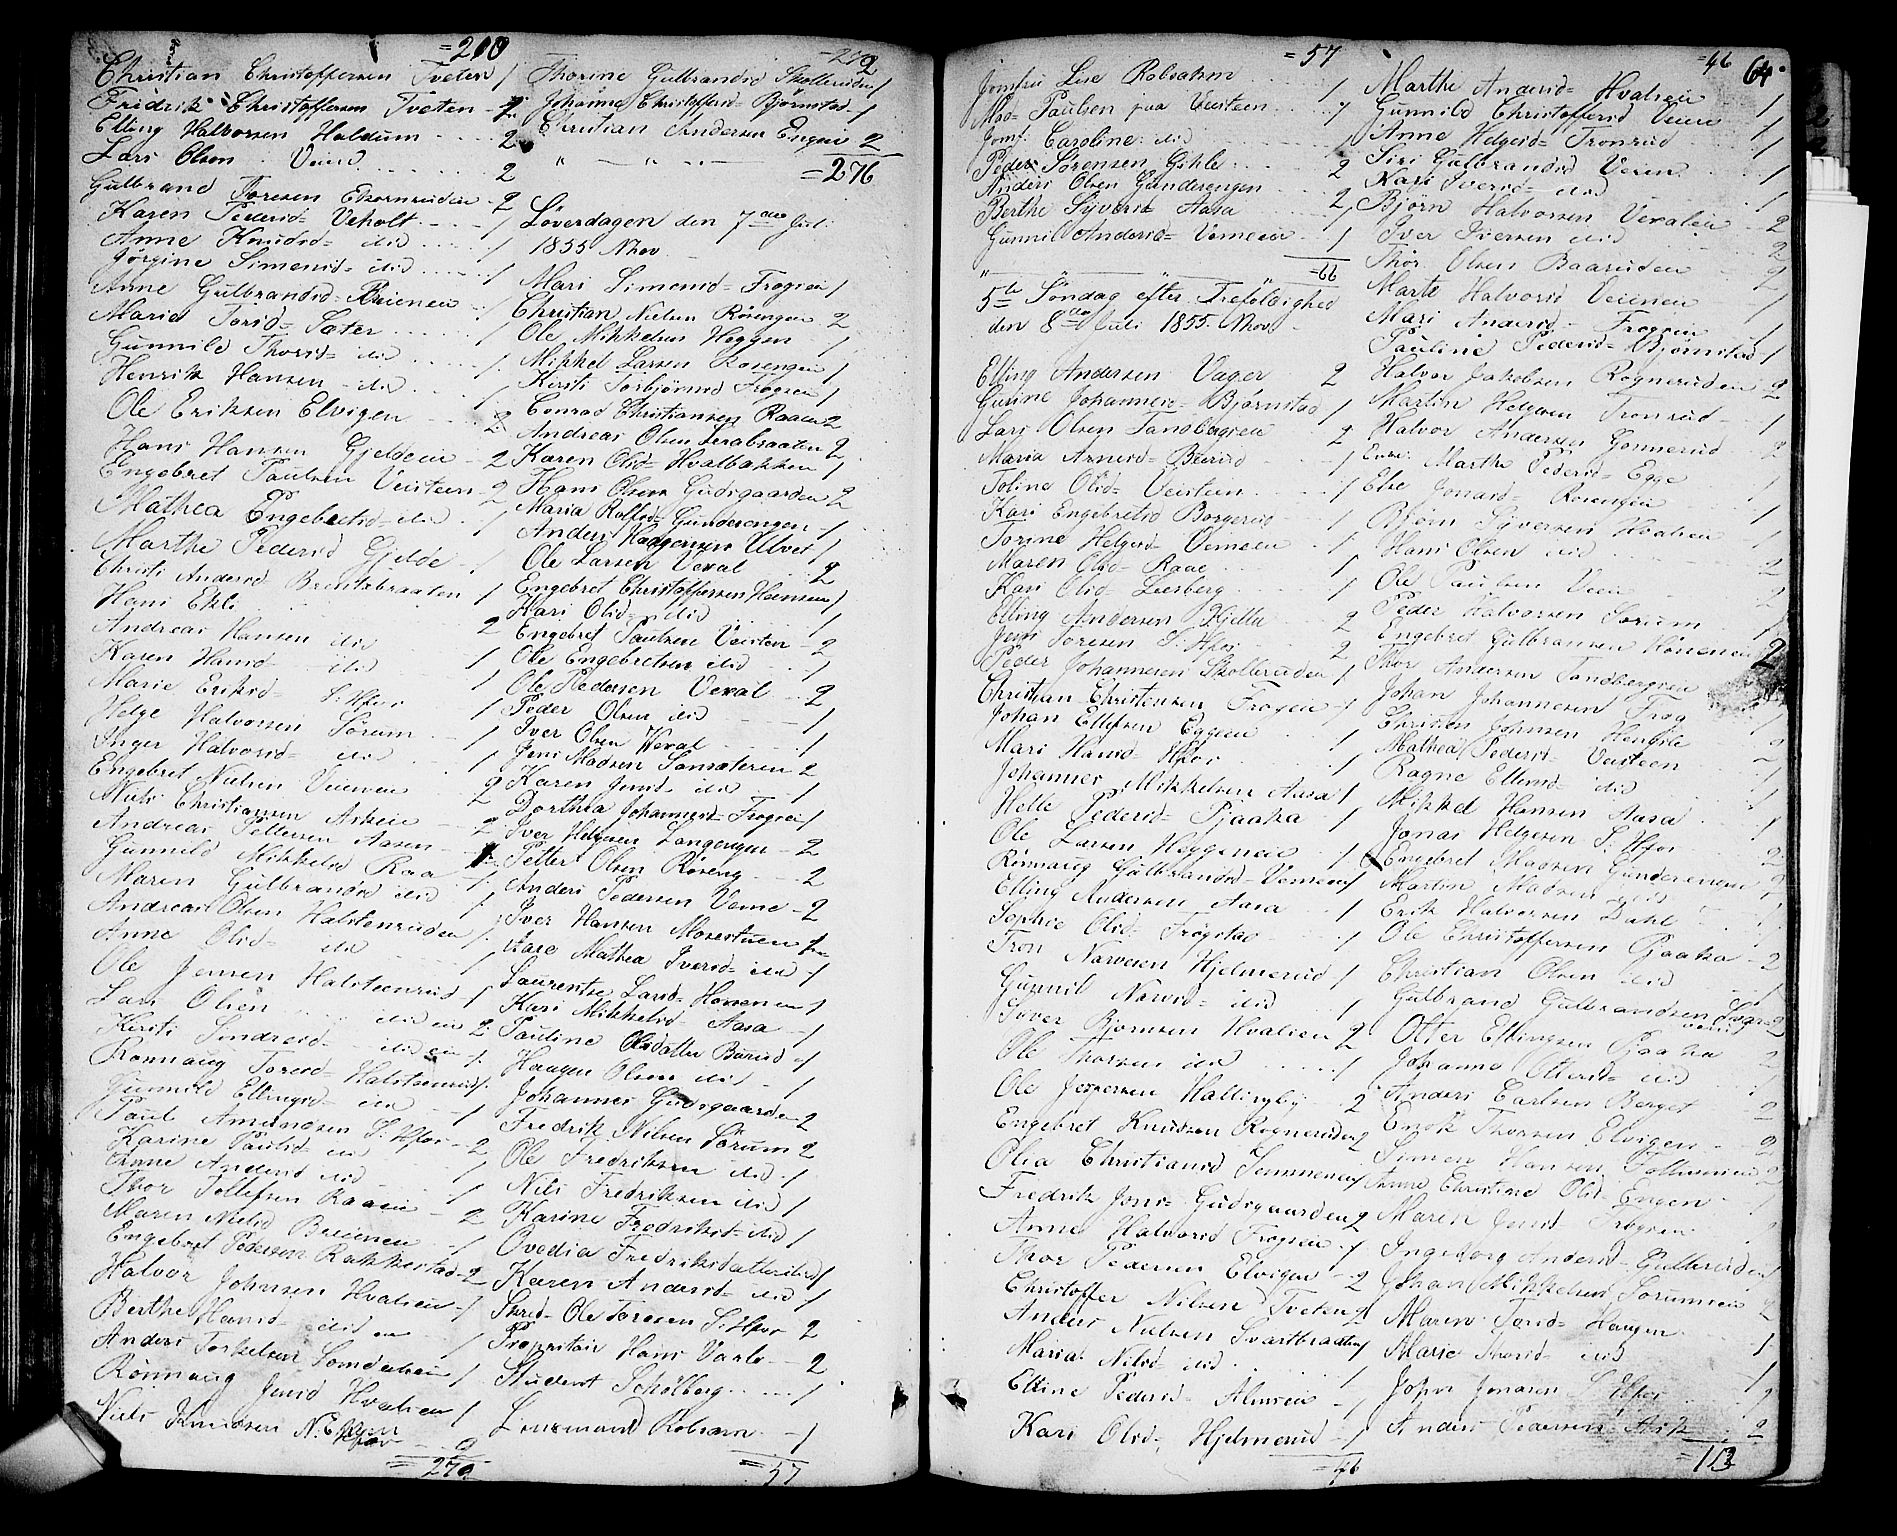 =210
Christian Christoffersen Tveten 1
Fredrik Christoffersen Tveten
Elling Halvorsen Haldum 2
Lars Olsen Veien 2
Gulbrand Toresen 2
Karen Pedersd= Veholt 1
Anne Knudsd= ibid 1
Jørgine Simensd= ibid 1
Anne Gulbrandsd= 1
Maria Torsd= Sater 1
Gunnild Thorsd= ibid 1
Henrik Hansen ibid 1
Ole Eriksen Elvigen 2
Hans Hansen Gjeldeie 2
Engebret Paulsen Veisteen 2
Mathea Engebretsd= ibid 1
Marthe Pedersd Gjelde 1
Christi Andersd Brentebraaten 1
Hans Ekli 2
Andreas Hansen ibid 1
Karen Hansd= ibid 1
Marie Eriksd= S: Hfos 1
Helge Halvorsen Sørum 1
Inger Halvorsd= ibid 1
Engebret Nielsen Veieneie 2
Niels Christiansen Askeie 2
Andreas Pettersen Aasen
Gunnild Mikkelsd Raa 1
Maren Gulbrandsd ibid 1
Andreas Olsen Halstenruden 1
Anne Olsd= ibid 1
Ole Jensen Halsteenrud 1
Lars Olsen ibid eie 2
Kersti Sindresd= ibid eie 1
Rønnaug Toresd= Halsteenrud 1
Gunnild Ellingsd= ibid 1
Paul Amundsen S: Hfos 2
Karine Paulsd= ibid 1
Anne Andersd ibid 1
Thor Tollefsen Raaeie 2
Maren Nielsd Breieneie 1
Engebret Pedersen Rakkestad 2
Halvor Johnsen Hvalseie 1
Berthe Hansd= ibid eie 1
Anders Torkelsen Somdaleie 1
Rønnaug Jensd Hvalseie 1
Niels Knudsen N. Eggen
Hfos 2
=272

=272
Thorine Gulbrandsd Skollerudeie 1
Johanne Christoffersd= Bjørnstad 1
Christian Andersen Engeie 2
=276
Løverdagen den 7de Juli
1855 Nhov
Mari Simensd= Frogseie 1
Christian Nielsen Røsengen 2
Ole Mikkelsen Heggen 1
Mikkel Larsen Røsengen 1
Kersti Torbjørnsd Frogseie 1
Conrad Christiansen Raaen 2
Andreas Olsen 2
Karen Olsd= Hvalbakken 1
Hans Olsen Gudsgaarden 2
Maria Rolfsd= Gunderengen 1
Anders Haagensen Ulver 1
Ole Larsen Vexal 2
Engebret Christoffersen Hønsen 1
Kari Olsd= ibid 1
Engebret Paulsen Veisten 2
Ole Engebretsen ibid 1
Ole Pedersen Vexal 2
Peder Olsen ibid 1
Iver Olsen Wexal 1
Jens Madsen Somsæteren 2
Karen Jensd= ibid 1
Dorthea Johannesd= Frogseie 1
Iver Helgesen Langengen 2
Petter Olsen Røseng 2
Anders Pedersen Veme 2
Iver Hansen Mosestuen
Aase Mathea Iversd= ibid 1
Laurentse Larsd= Hønen 1
Kari Mikkelsd= Aasa 1
Pauline Olsdatter Børud 1
Haagen Olsen ibid 1
Johannes Gudsgaarden 2
Fredrik Nilsen Sørum 2
Ole Fredriksen ibid 1
Nils Fredriksen ibid 1
Karine Fredriksd= ibid 1
Ovedia Fredriksdatter ibid 1
Karen Andersd= ibid 1
Skred= Ole Toresen S: Hfos 2
Proprietair Hans Varlo 2
Student Schølberg 1
Lensmand Robsarm 1
=57

=57
Jomfru Lise Robsahm 1
Mad= Paulsen paa Veisteen 1
Jomf: Caroline ibid 1
Peder Sørensen Gihle 2
Anders Olsen Gunderengen 2
Berthe Syversd= Aasa 1
Gunnil Andersd= Vemeeie 1
=66
5te Søndag efter Trefoldighed
den 8de Juli 1855. Nhov
Elling Andersen Vager 2
Gurine Johannesd= Bjørnstad 1
Lars Olsen Tandbergeie 2
Maria Arnesd= Beierud 1
Toline Olsd= Veisteen 1
Kari Engebretsd Borgerud 1
Torine Helgesd= Vemeeie 1
Maren Olsd= Raae 1
Kari Olsd= Leesberg 1
Elling Andersen Kjelle 2
Jens Toresen S. Hfos 2
Peder Johannesen Skollerudeie 1
Christian Christensen Frogeie 1
Johan Ellefsen Eggeeie 1
Mari Hansd= Hfos 1
Johannes Mikkelsen Aasa 1
Helle Pedersd= Pjaaka 1
Ole Larsen Heggeneie 1
Rønnaug Gulbrandsd= Vemeeie 1
Elling Andersen Aasa 1
Sophie Olsd= Frøgstad 1
Tron Narvesen Hjelmerud 1
Gunnil Narvesd= ibid 1
Syver Bjørnsen Hvalseie 2
Ole Thorsen ibid 1
Ole Jespersen Hallingby 2
Engebret Knudsen Rognerud 2
Olea Christiansd 1
Fredrik Jons= Gudsgaarden 2
Anne Halvorsd Frogseie 1
Thor Pedersen Elvigen 2
Christoffer Nilsen Tveten 2
Anders Nielsen Svartbraaten 1
Maria Nilsd= ibid 1
Elline Pedersd= Almseie 1
Kari Olsd= Hjelmerud 1
=46

=46 64.
Marthe Andersd= Hvalseie 1
Gunnild Christoffersd Veien 1
Anne Helgesd= Tronrud 1
Siri Gulbrandsd Veien 1
Kari Iversd= ibid 1
Bjørn Halvorsen Vexaleie 2
Iver Iversen ibid 2
Thor Olsen Baarudeie 2
Marte Halvorsd Veieneie 1
Mari Andersd= Frogseie 1
Pauline Pedersd= Bjørnstad 1
Halvor Jakobsen Rognerudeie 2
Martin Helgesen Tronrud 1
Halvor Andersen Gonnerud 2
Enke Marthe Pedersd= Egge 1
Else Jonasd= Rosengeie 1
Bjørn Syversen Hvalseie 1
Hans Olsen ibid 2
Ole Paulsen Veeie 2
Peder Halvorsen Sørum 1
Engebret Gulbransen Høneneie 2
Thor Andersen Tandbergeie
Johan Johannesen Frøg 1
Christen Johnsen Hensrle 2
Mathea Pedersd= Veisteen 1
Ragne Ellensd= ibid 1
Mikkel Hansen Aasa 1
Jonas Helgesen S: Hfos 2
Engebret Madsen Gundereneie 2
Martin Madsen ibid 1
Erik Halvorsen Dahl 1
Ole Christoffersen Pjaaka 2
Christian Olsen ibid 1
Gulbrand Gulbrandsen 2
Otter Ellingsen Pjaaka 2
Johanne Ottersd= ibid 1
Anders Carlsen Berget 2
Enok Thorsen Elvigen 2
Simen Hansen 2
Anne Christine Olsd= Engen 1
Maren Jensd Frøgseie 1
Ingeborg Andersd= Gulbrudeie 1
Johan Mikkelsen Sørumseie 2
Maren Torsd= Haugen 1
Marie Thorsd= ibid 1
Johan Jonasen S Hfos 2
Anders Pedersen Ask 2
=113